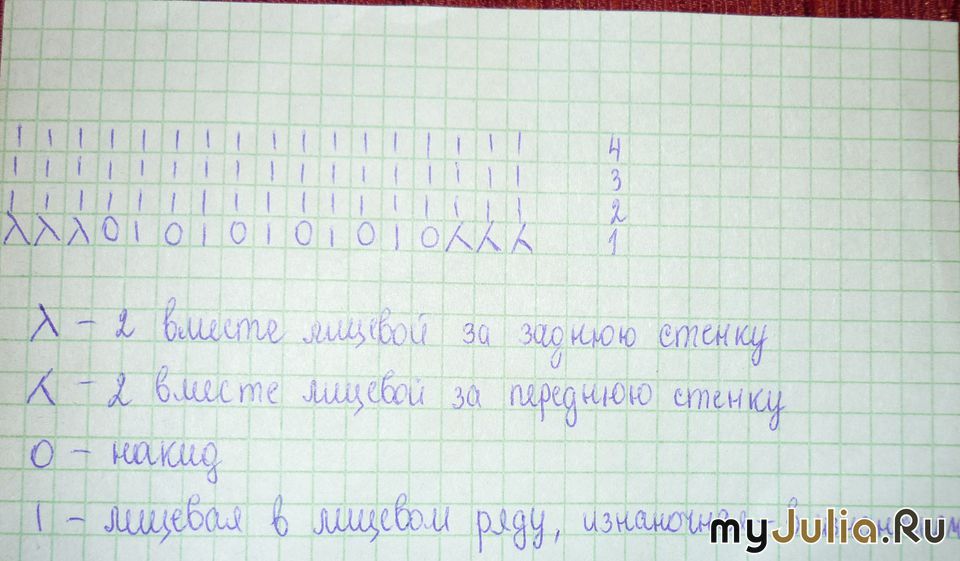 I I I I I I I I I I I I I I I I I 4
I I I I I I I I I I I I I I I I I 3
I I I I I I I I I I I I I I I I I 2
λ λ λ O I O I O I O I O I O ⁁ ⁁ ⁁ 1
λ – 2 вместе лицевой за заднюю стенку
⁁ – 2 вместе лицевой за переднюю стенку
O – накид
I – лицевая в лицевом ряду, изнаночная
myJulia.Ru